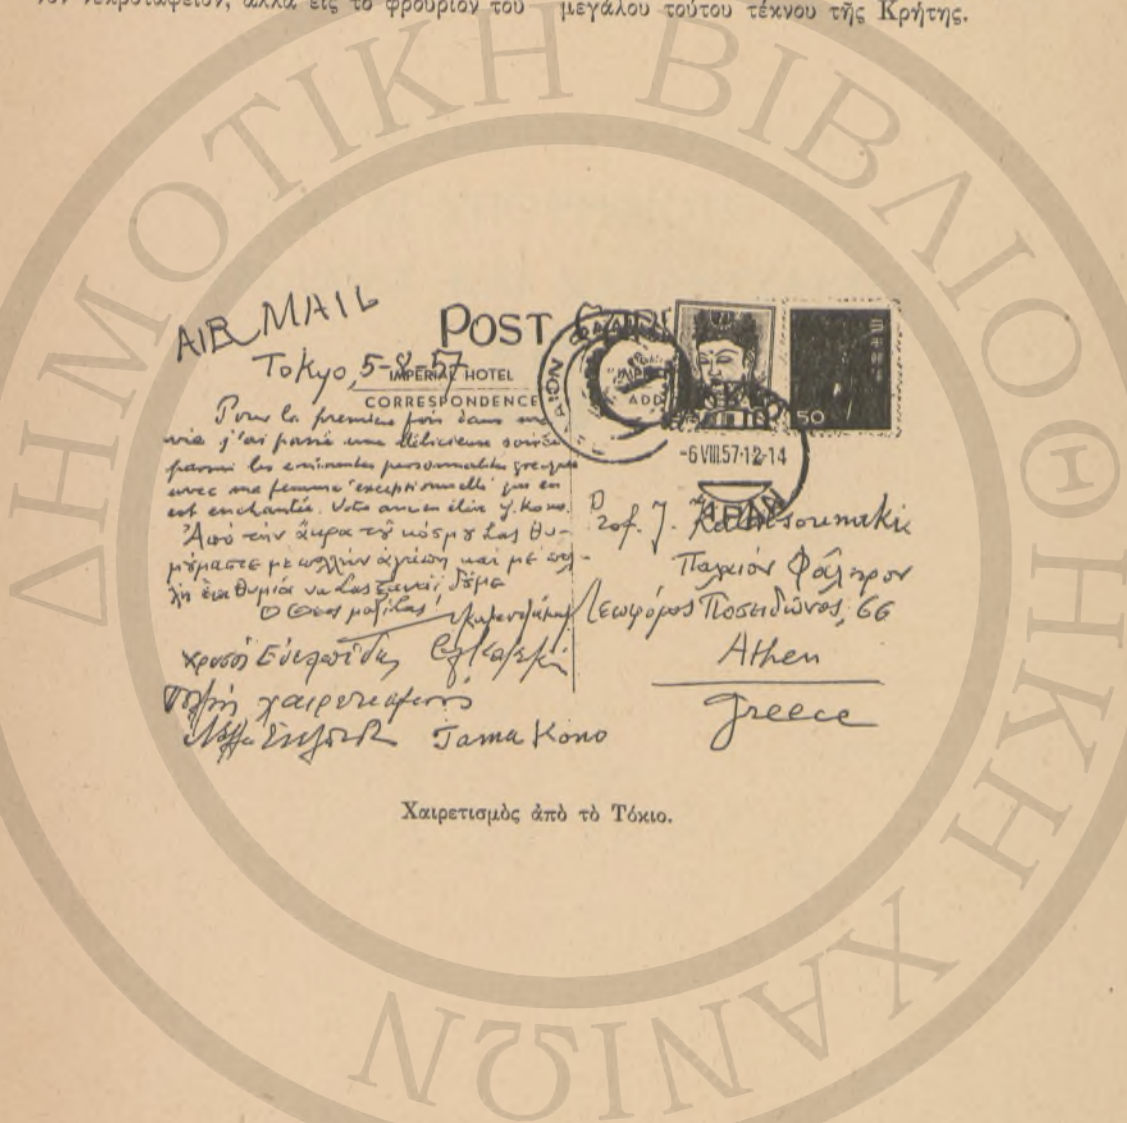 τὸν νεκροταφεῖον, ἀλλὰ εἰς τὸ φρούριον τοῦ
μεγάλου τούτου τέκνου τῆς Κρήτης.
ΔΗΜΟΤΙΚΗ ΒΙΒΛΙΟΘΗΚΗ ΧΑΝΙΩΝ
AIR MAIL
POST
Tokyo, 5-8-57
IMPERIAL HOTEL
CORRESPONDENCE
Pour la première fois dans ma
vie j'ai passé une délicieuse soirée
parmi les éminentes personnalités grecques
avec ma femme exceptionnelle qui en
est enchantée. Votre ancien élève J. Kono.
Ἀπὸ τὴν ἄκρα τοῦ κόσμου σας θυ-
μούμαστε με πολλὴν ἀγάπη και με πολ-
λη ἐπιθυμία να σας ξαναϊδούμε
Ο Θεος μαζί σας
Καζαντζάκης
Χρυσός Ευελπίδης
Tama Kono
日本郵便
50
-6.VIII.57.12-14
JAPAN
Prof. J.
Παλαιόν Φάληρον
Λεωφόρος Ποσειδώνος, 66
Athen
Greece
Χαιρετισμὸς ἀπὸ τὸ Τόκιο.